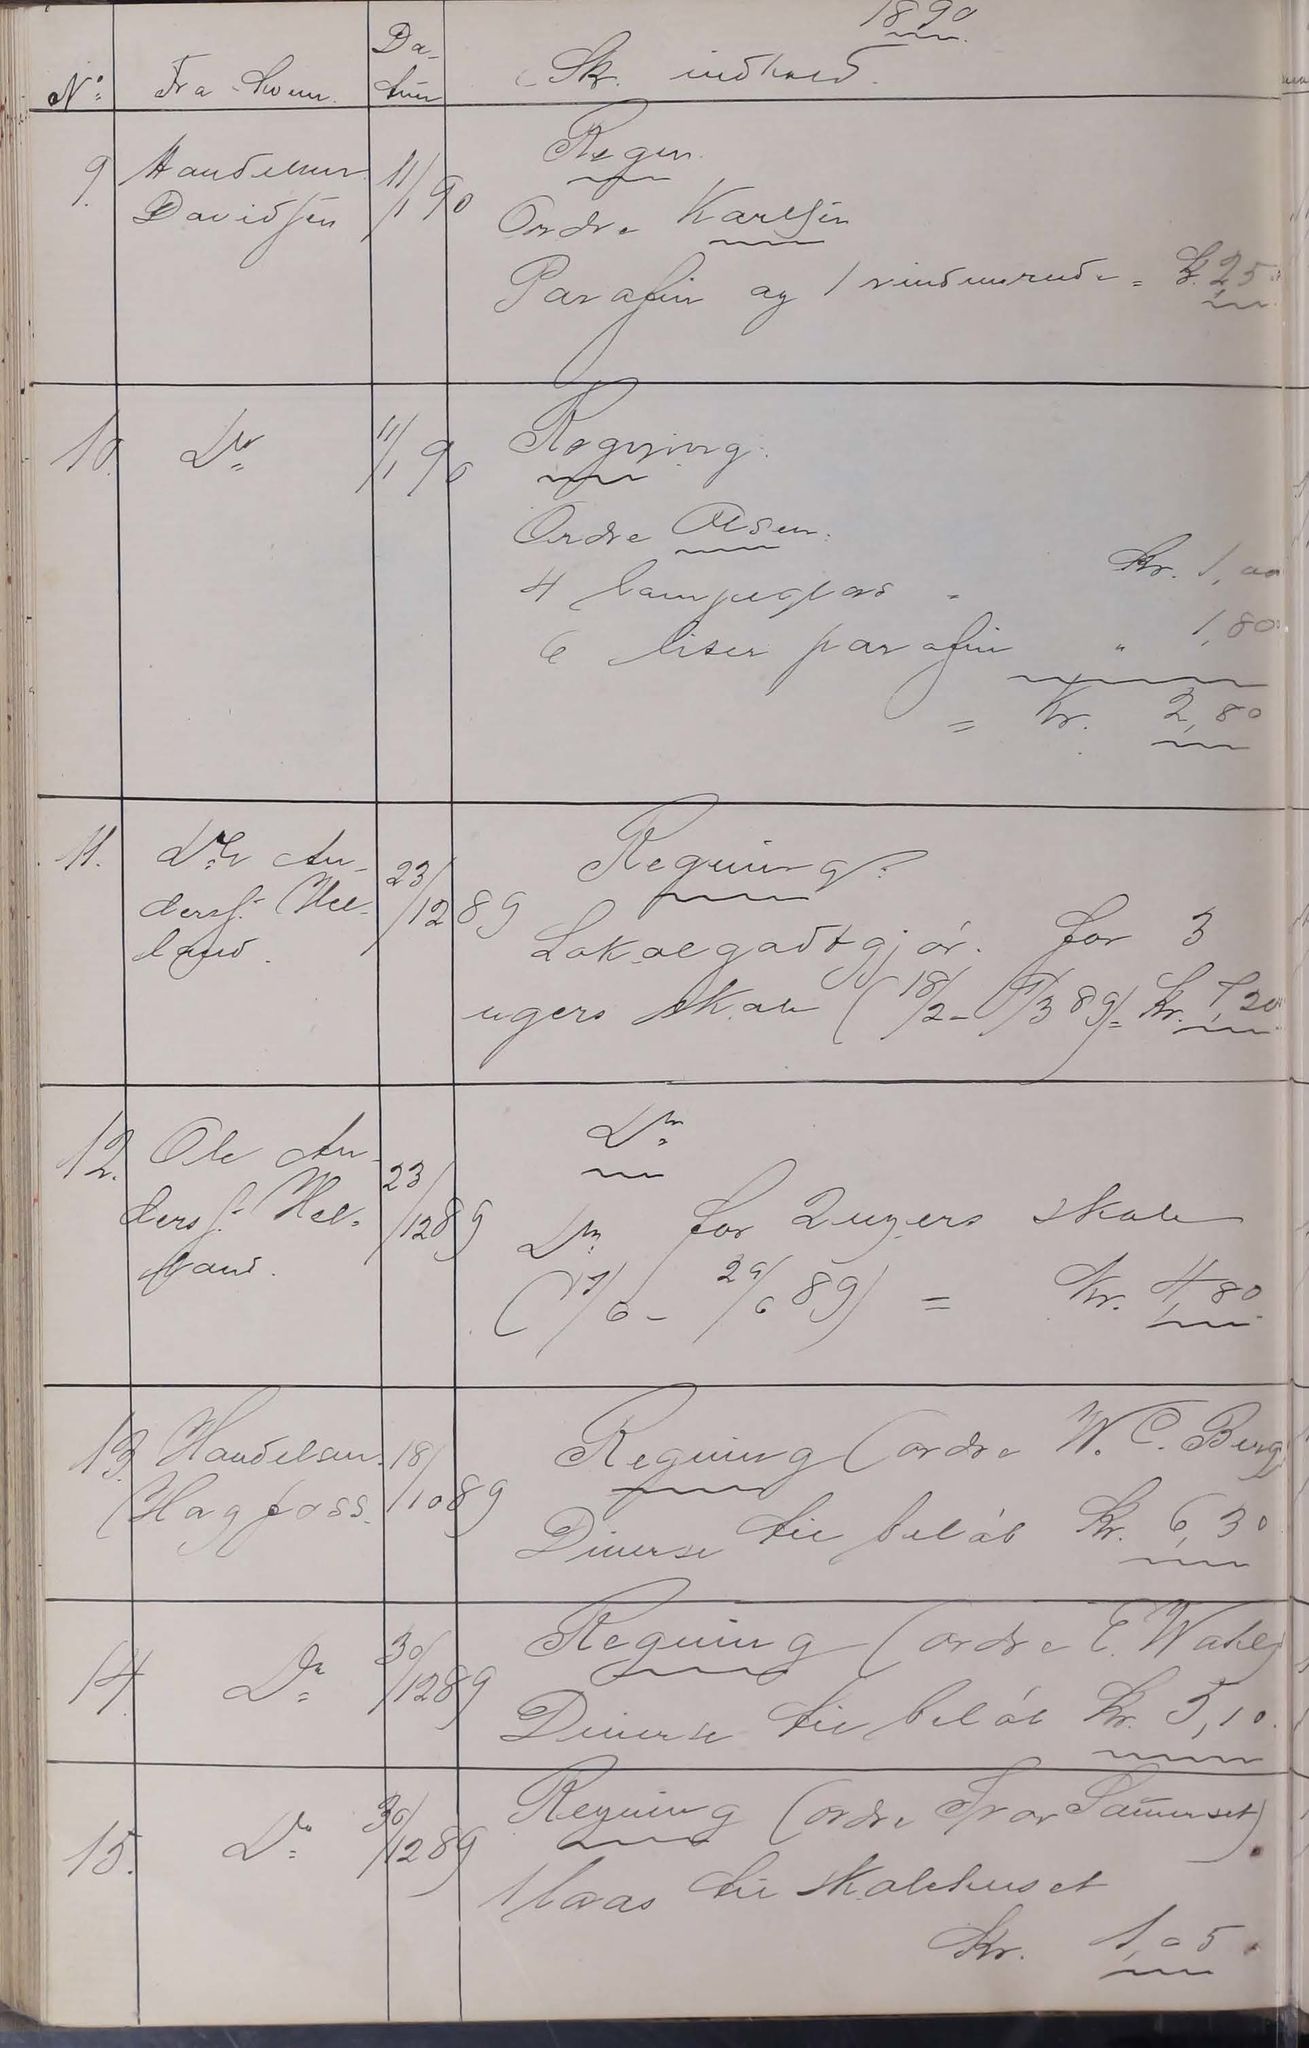 1890
No. Fra hvem. Da-
tum Skr. indhold.
9. Handelsm. 11/1 90 Regn.
Davidsen Ordre Karlsen
Parafin og 1 vindusrude = Kr. 2,50
10. Do 11/1 90 Regning.
Ordre Olsen.
4 lampeglas " Kr. 1,00
6 liter parafin " 1,80
= Kr. 2,80
11. An- 23/12 89 Regning.
ders. Hel-
land. Lokalegodtgjör. for 3
ugers skole (18/2 - 9/3 89) = Kr. 7,20
12. Ole An- 23/12 89 Do
ders. Hel-
land. Do for 2 ugers skole
(17/6 - 29/6 89) = Kr. 4,80
13. Handelsm. 18/10 89 Regning (ordre W. C. Berg)
Hagfoss. Diverse til belöb Kr. 6,30
14. Do 30/12 89 Regning (ordre E. Wahl)
Diverse til belöb Kr. 5,10.
15. Do 30/12 89 Regning (ordre Ivar Sammerset)
1 laas til skolehuset
Kr. 1,05